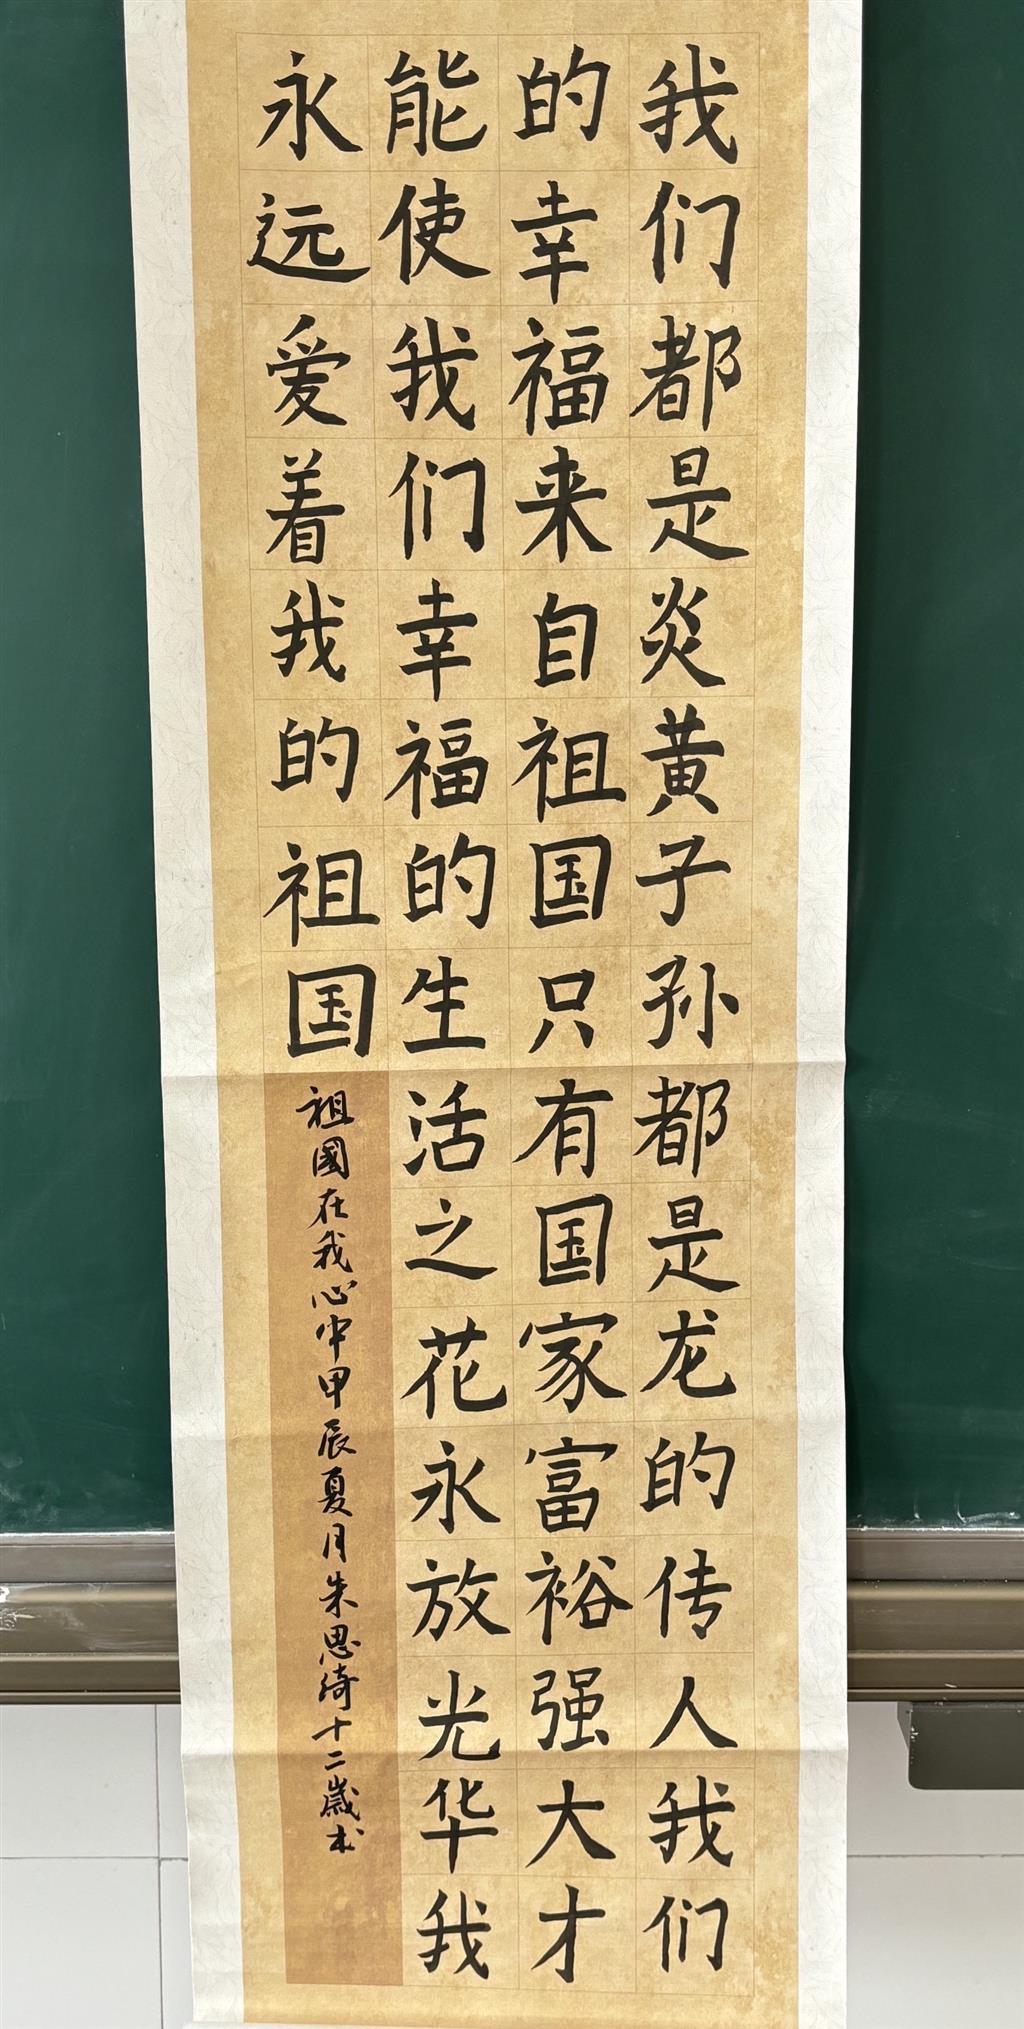 我们都是炎黄子孙都是龙的传人我们
的幸福来自祖国只有国家富裕强大才
能使我们幸福的生活之花永放光华我
永远爱着我的祖国
祖國在我心中甲辰夏月朱思绮十二歲书